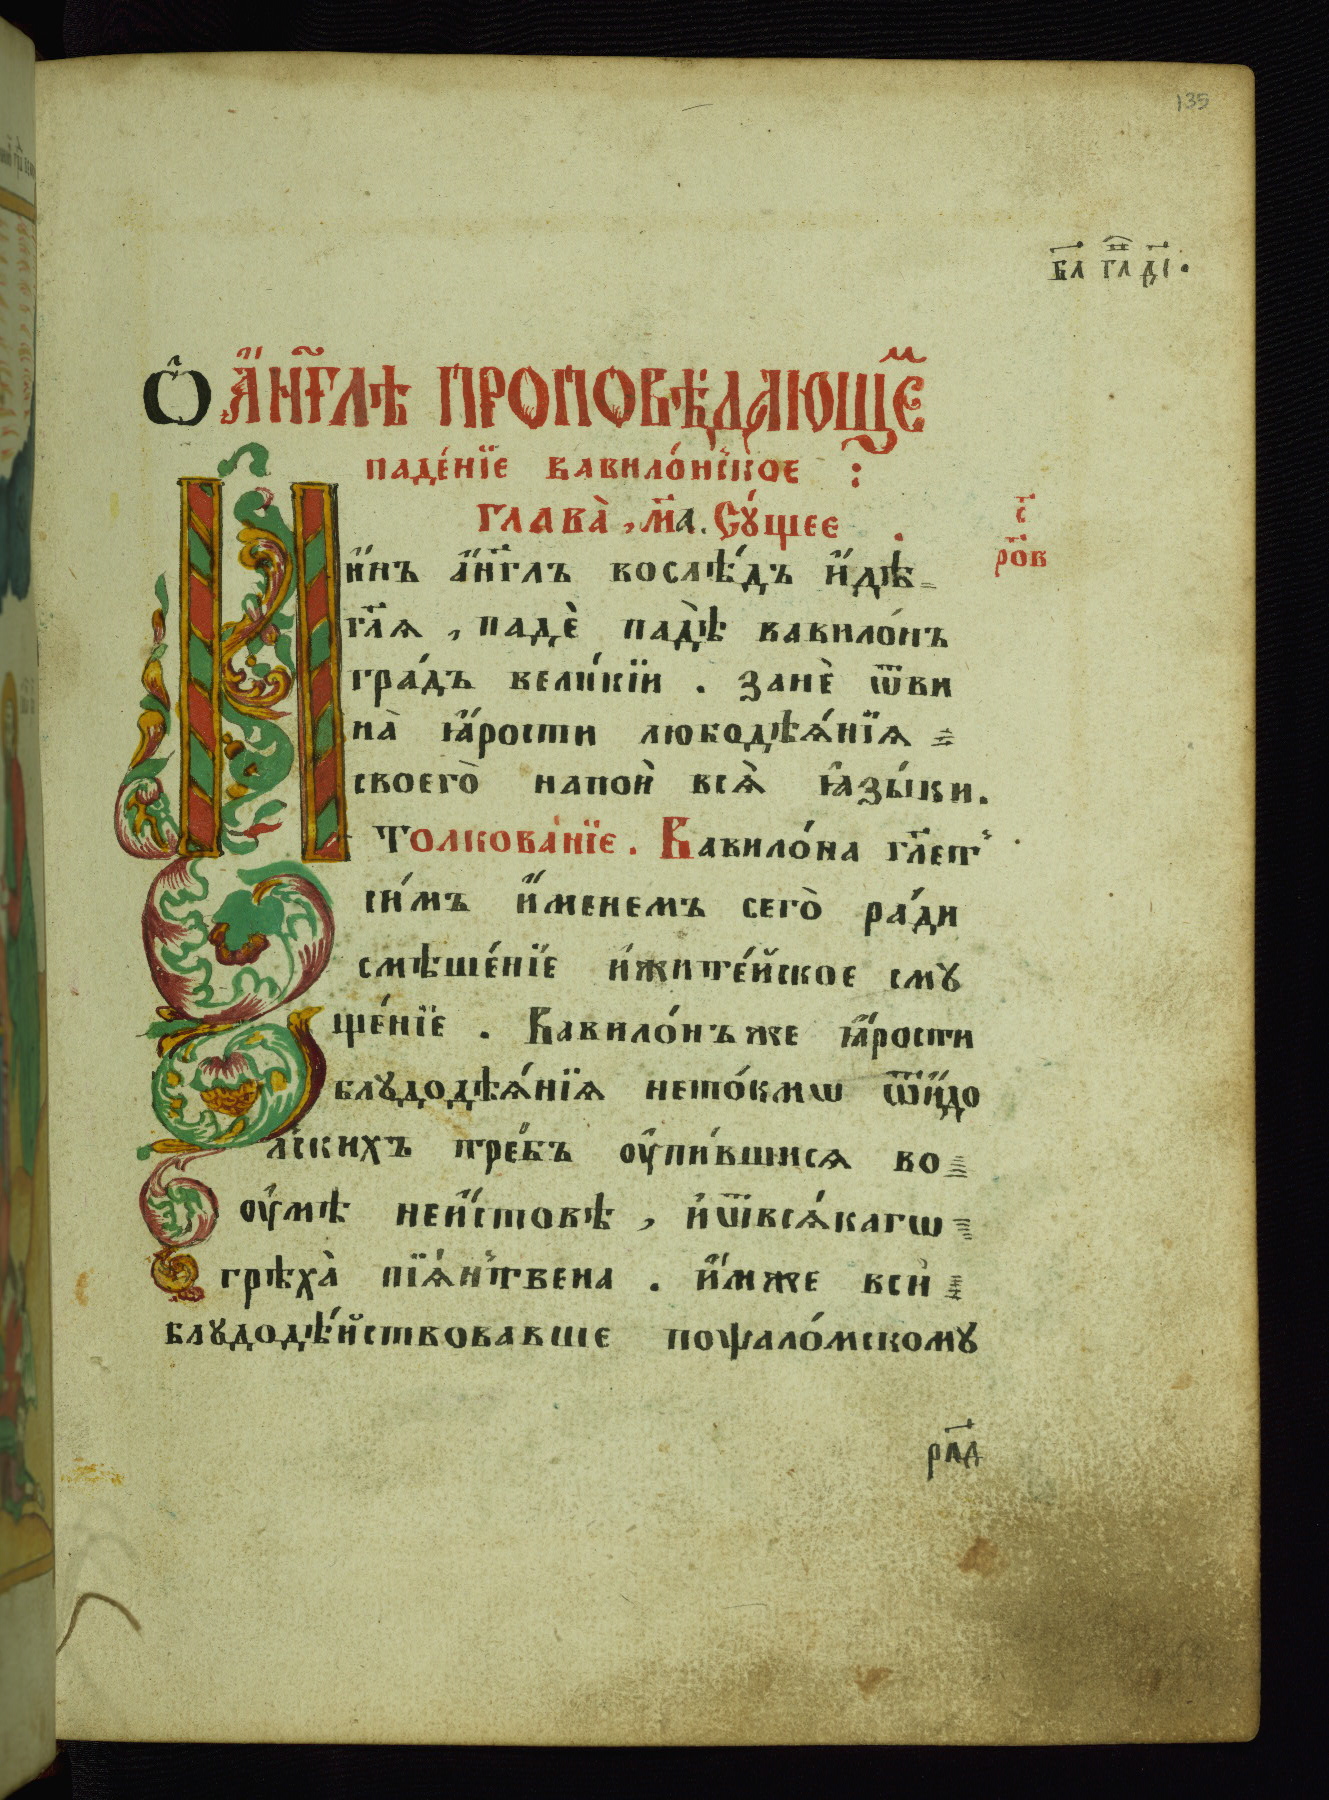 135
в҃л гл҃ д҃і.
Ѽ а҆́нг҃лѣ проповѣ́дающеⷨ
паде́нїе вавило́нское :
глава̀, м҃а. Су́щее .
с҃
ро҃в
И и҆́нъ а҆́нг҃лъ вослѣ́дъ и҆́дѣ
гл҃ѧ, падѐ падѐ вавило́нъ
гра́дъ вели́кїи . занѐ ѿви
на̀ ꙗ҆́рости любодѣѧ́нїѧ
своего̀ напоѝ всѧ̀ ꙗ҆зы́ки.
Толкова́нїе . Вавило́на гл҃етъ
си́мъ и҆́менемъ сего̀ ра́ди
смѣше́нїе и҆жите́йское сму
ще́нїе . Вавило́нъже ꙗ҆́рости
блудодѣѧ́нїѧ нето́кмѡ ѿи҆́до
лскихъ тре́бъ оу҆пи́вшисѧ во
оу҆мѣ неи҆́стовѣ, и҆ѿвсѧ́кагѡ
грѣха̀ пїѧ́нствена . и҆́мже всѝ
блудодѣ́йствовавше поѱало́мскому
рл҃д